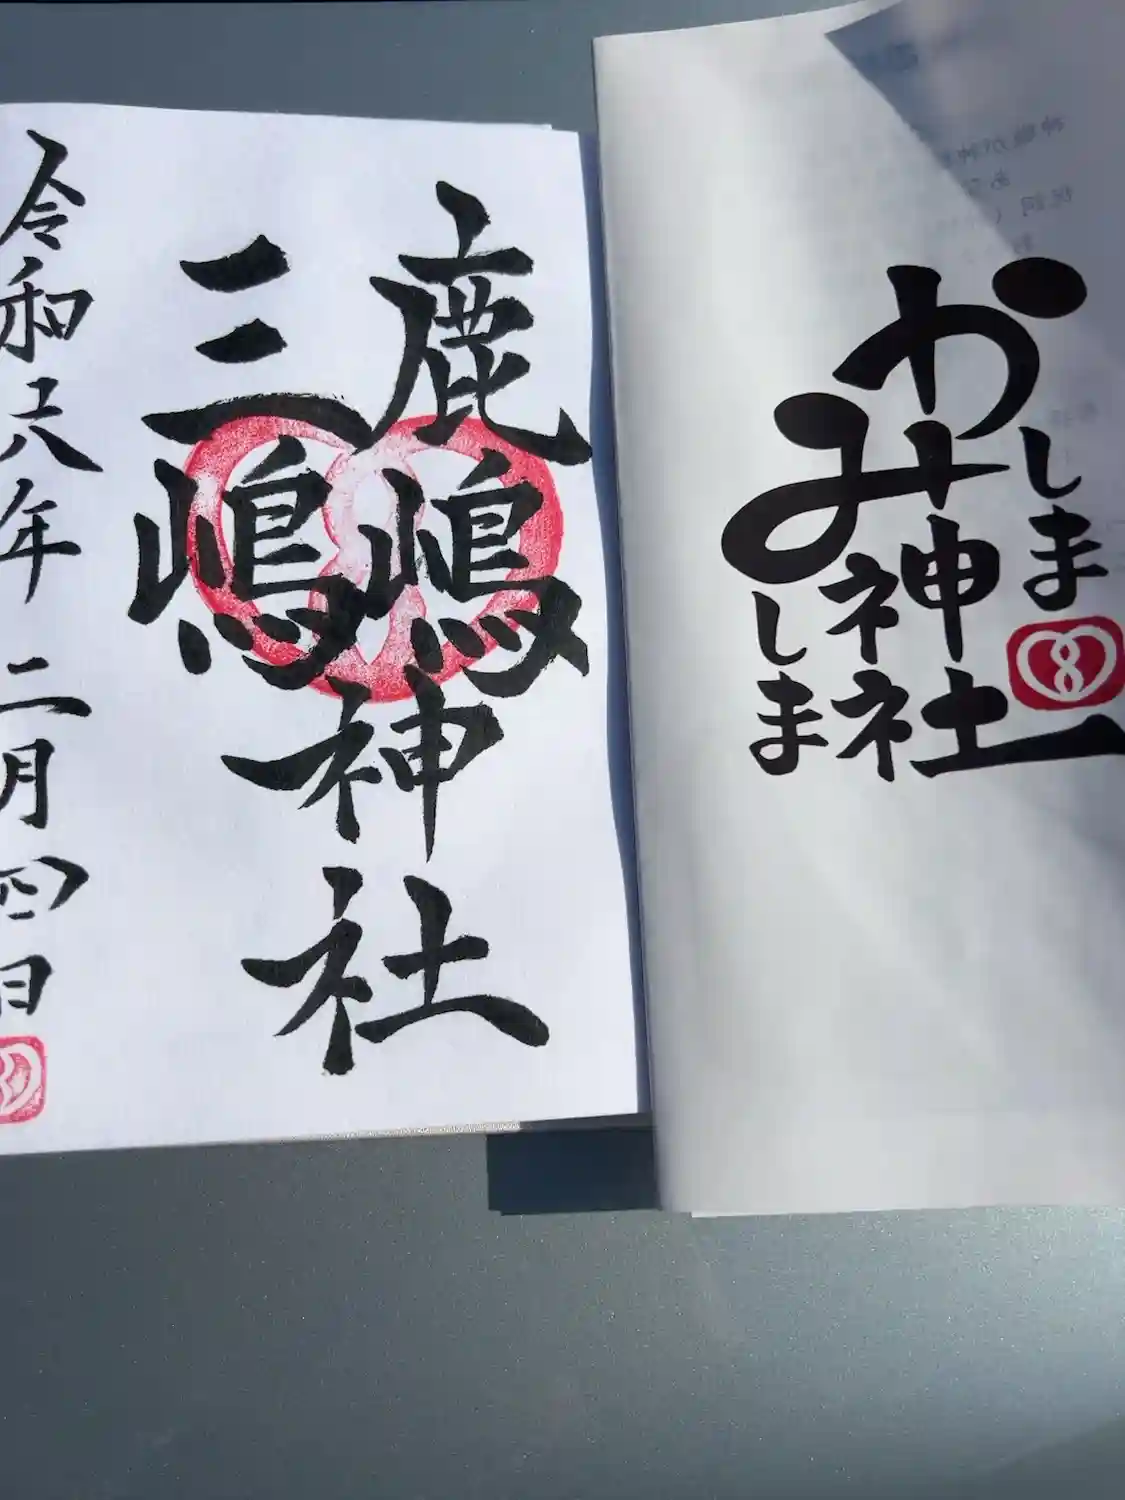 鹿嶋
三嶋
神社
令和六年二月四日
かしま
みしま
神社